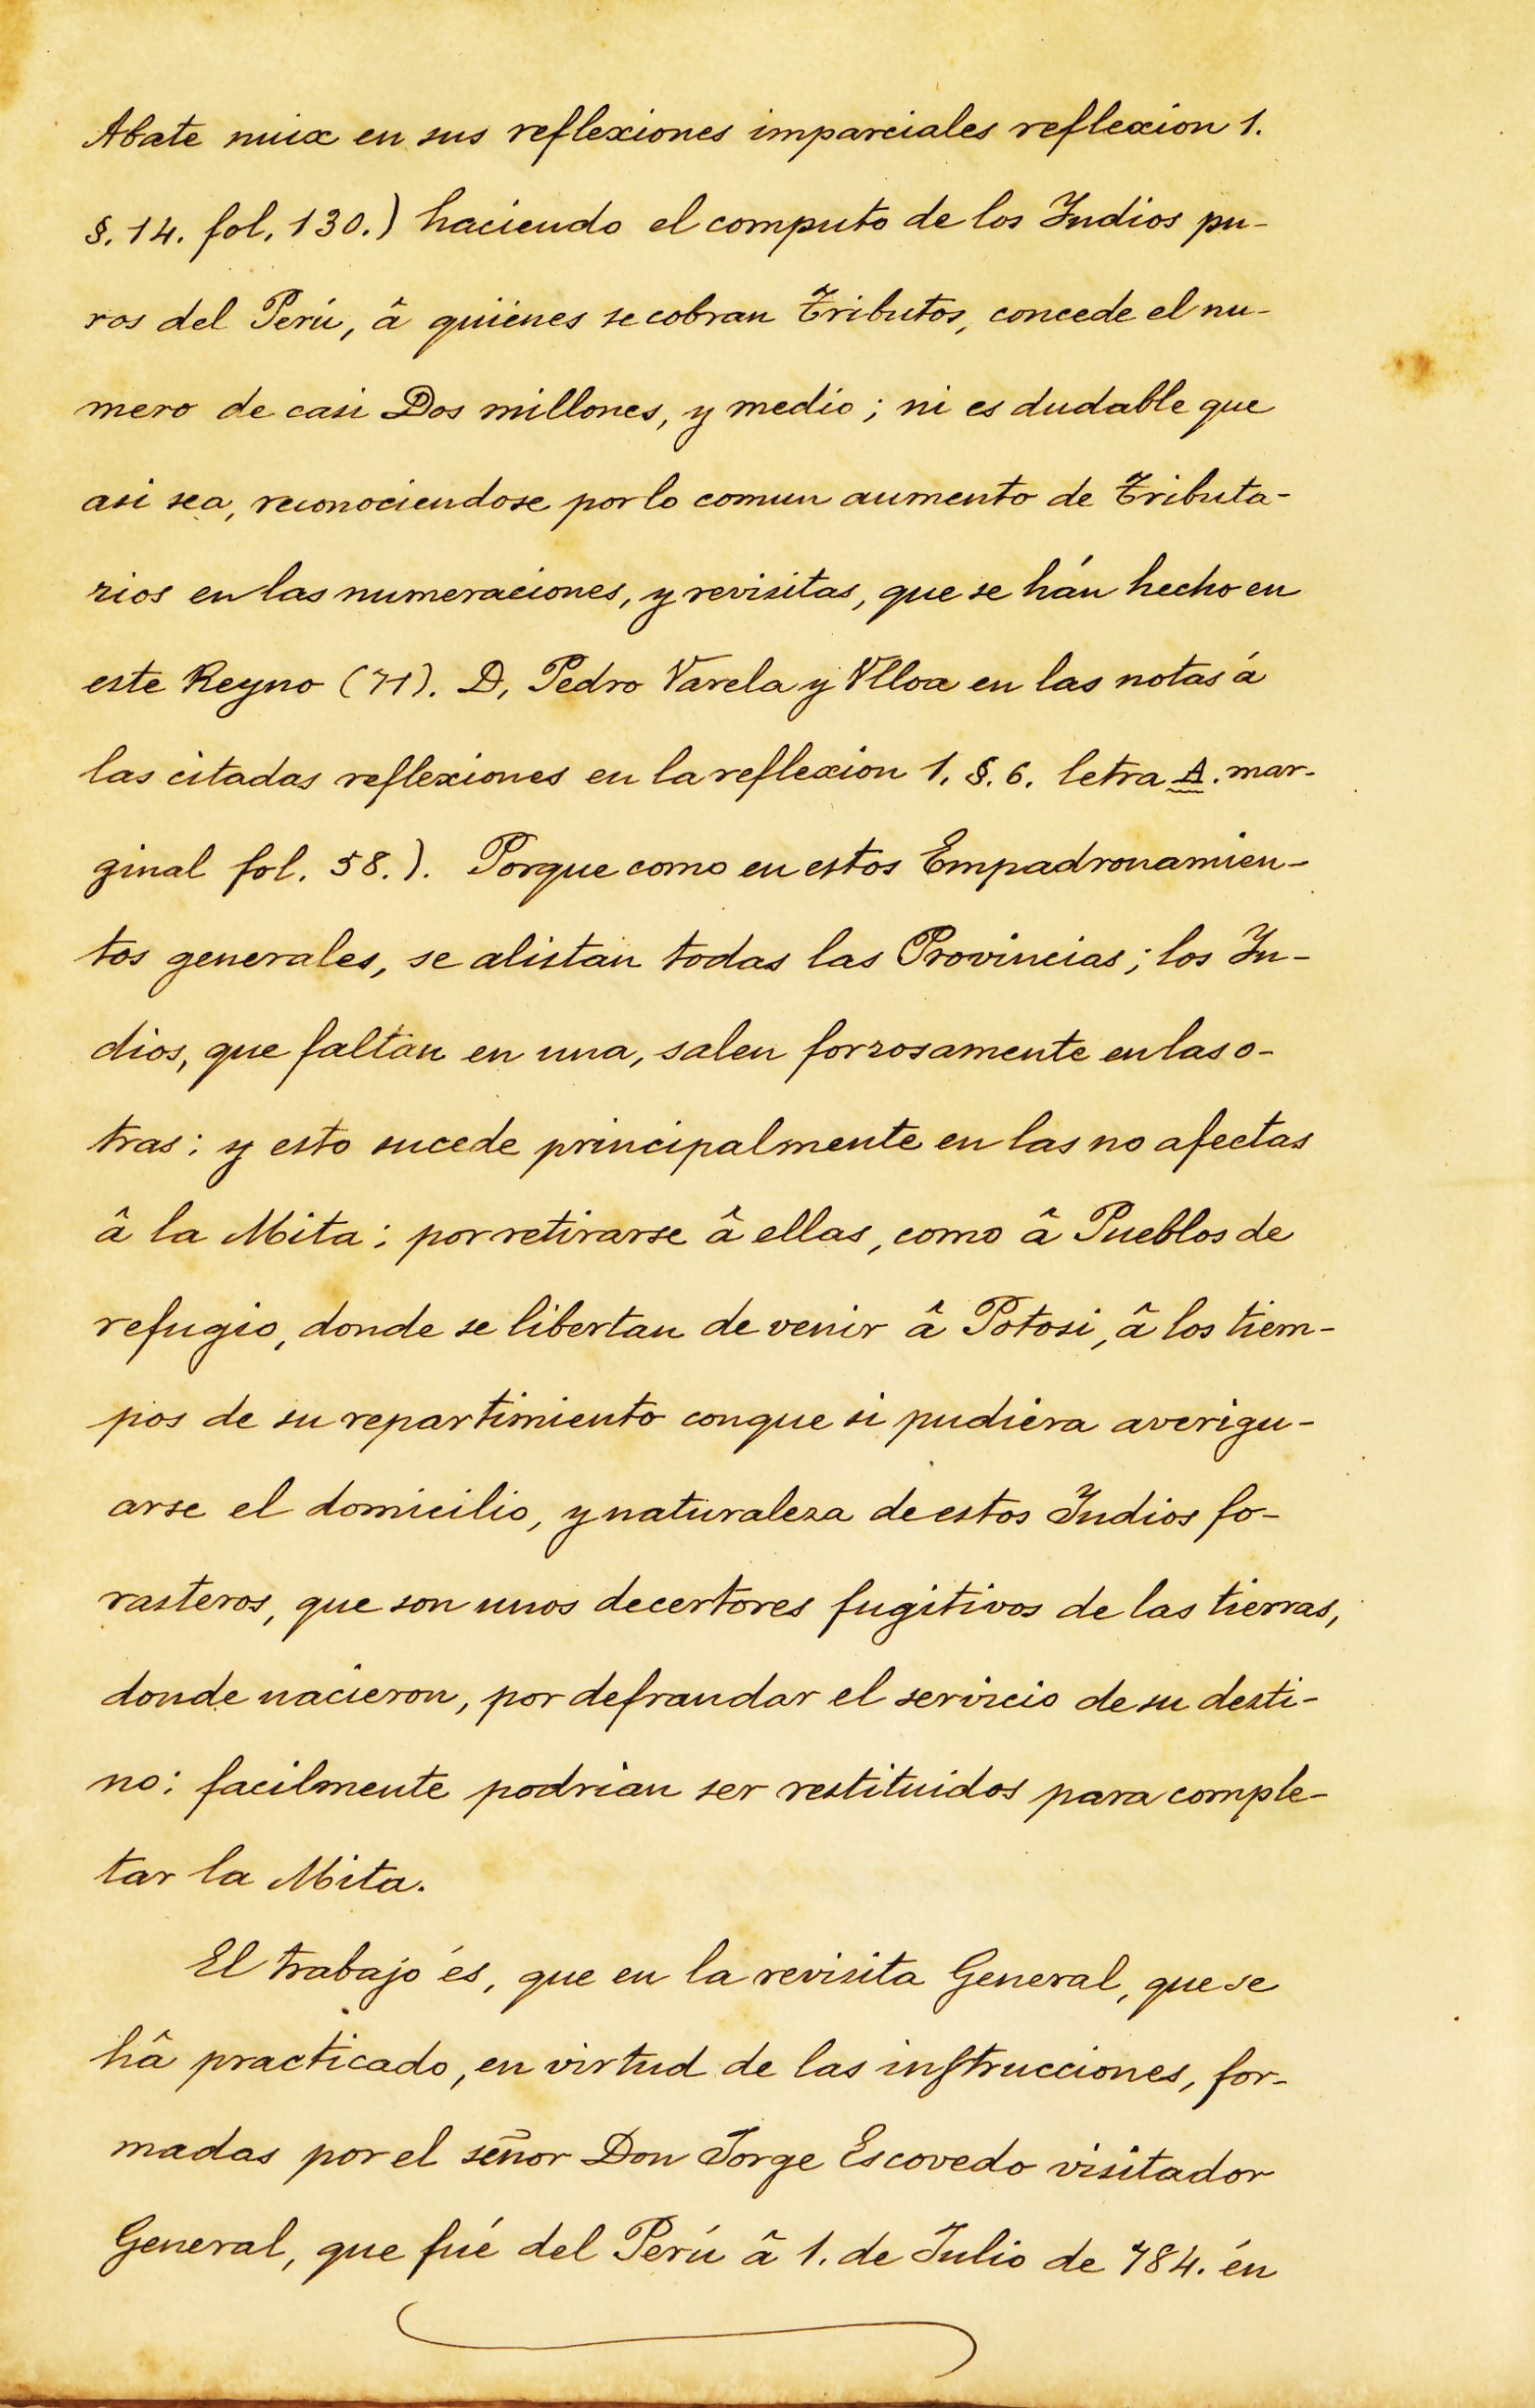 Abate nuix en sus reflexiones imparciales reflexion 1.
§. 14. fol. 130.) haciendo el computo de los Indios pu-
ros del Perú, â quienes se cobran Tributos, concede el nu-
mero de casi Dos millones, y medio; ni es dudable que
asi sea, reconociendose por lo comun aumento de Tributa-
rios en las numeraciones, y revisitas, que se hán hecho en
este Reyno (71). D. Pedro Varela y Vlloa en las notas á
las citadas reflexiones en la reflexion 1. §. 6. letra A. mar-
ginal fol. 58.). Porque como en estos Empadronamien-
tos generales, se alistan todas las Provincias; los In-
dios, que faltan en una, salen forzosamente en las o-
tras: y esto sucede principalmente en las no afectas
â la Mita: por retirarse â ellas, como â Pueblos de
refugio, donde se libertan de venir â Potosi, â los tiem-
pos de su repartimiento conque si pudiera averigu-
arse el domicilio, y naturaleza de estos Indios fo-
rasteros, que son unos decertores fugitivos de las tierras,
donde nacieron, por defraudar el servicio de su desti-
no: facilmente podrian ser restituidos para comple-
tar la Mita.
El trabajo és, que en la revisita General, que se
hâ practicado, en virtud de las instrucciones, for-
madas por el señor Don Jorge Escovedo visitador
General, que fué del Perú â 1. de Julio de 784. én